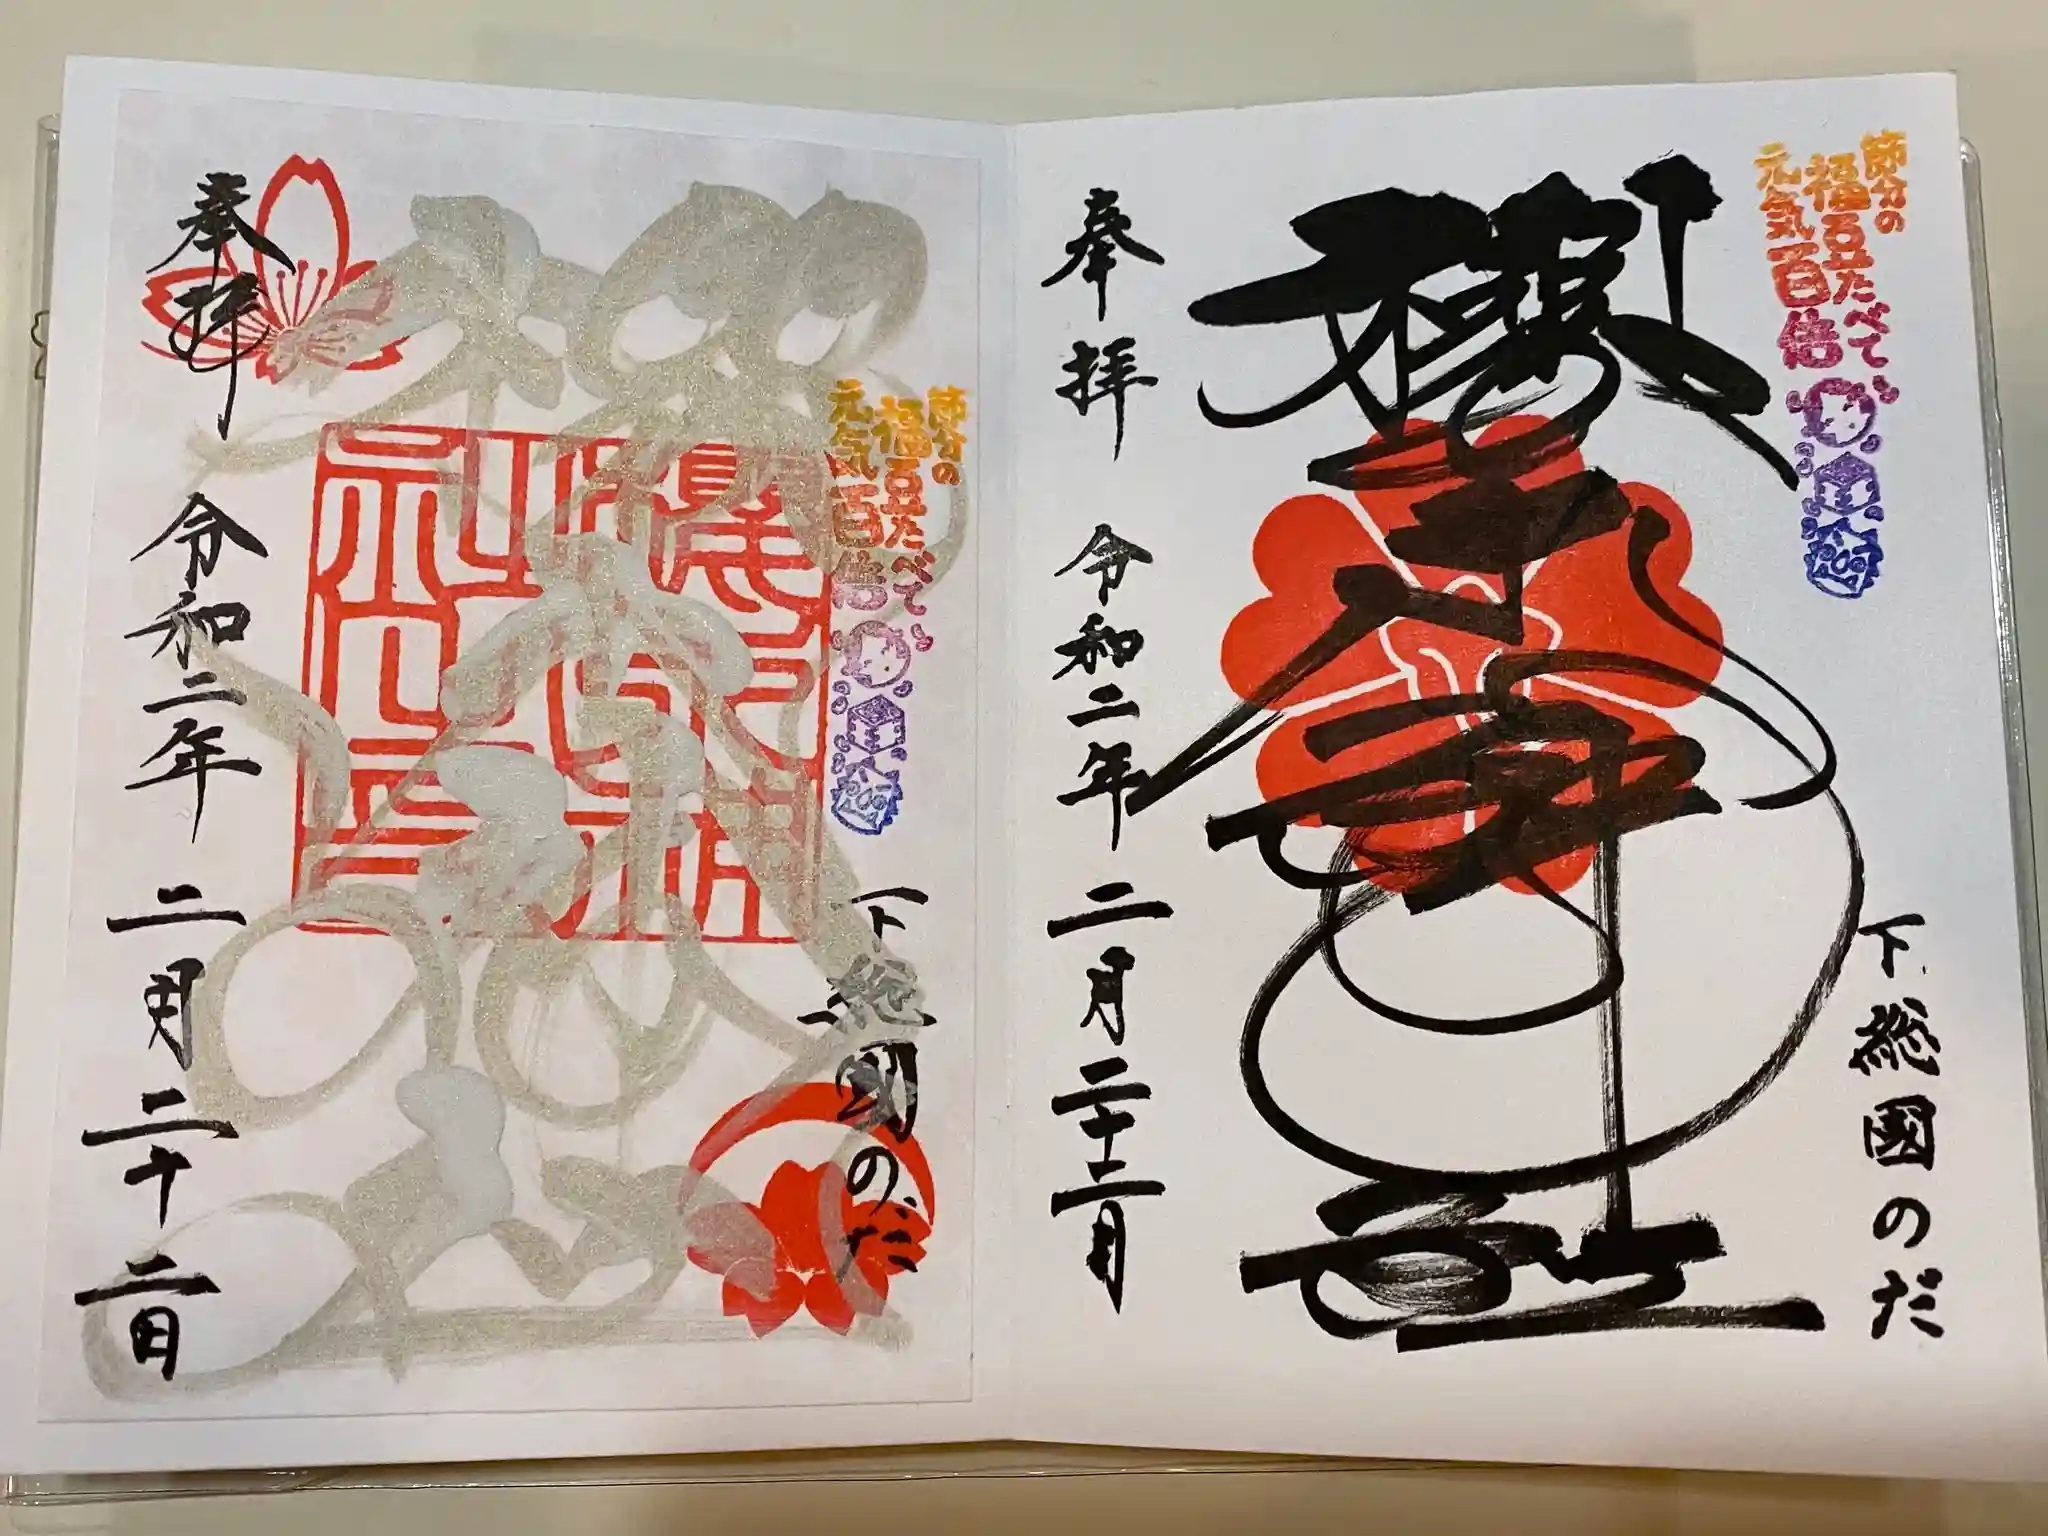 節分の
福豆たべて
元気百倍
下総國のだ
奉拝 令和二年二月二十二日
節分の
福豆たべて
元気百倍
下総國のだ
櫻木神社
奉拝 令和二年二月二十二日